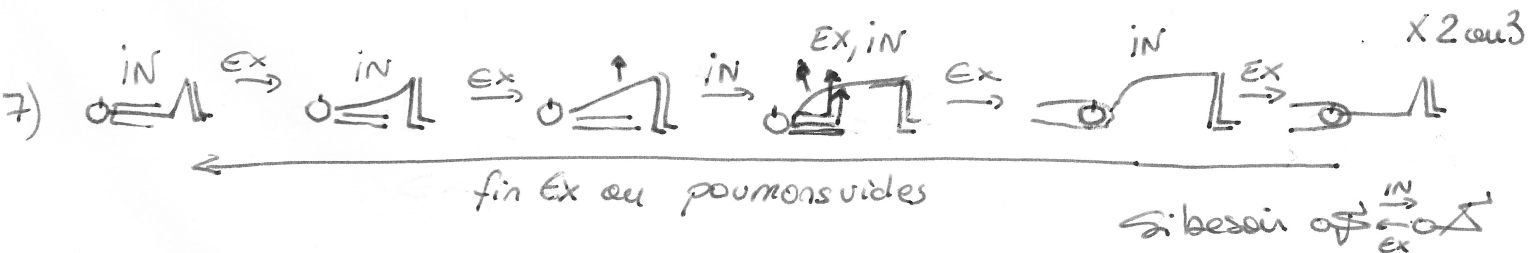 7) iN Ex iN Ex iN Ex, iN Ex iN Ex X 2 ou 3
fin Ex ou poumons vides
Si besoin IN
EX